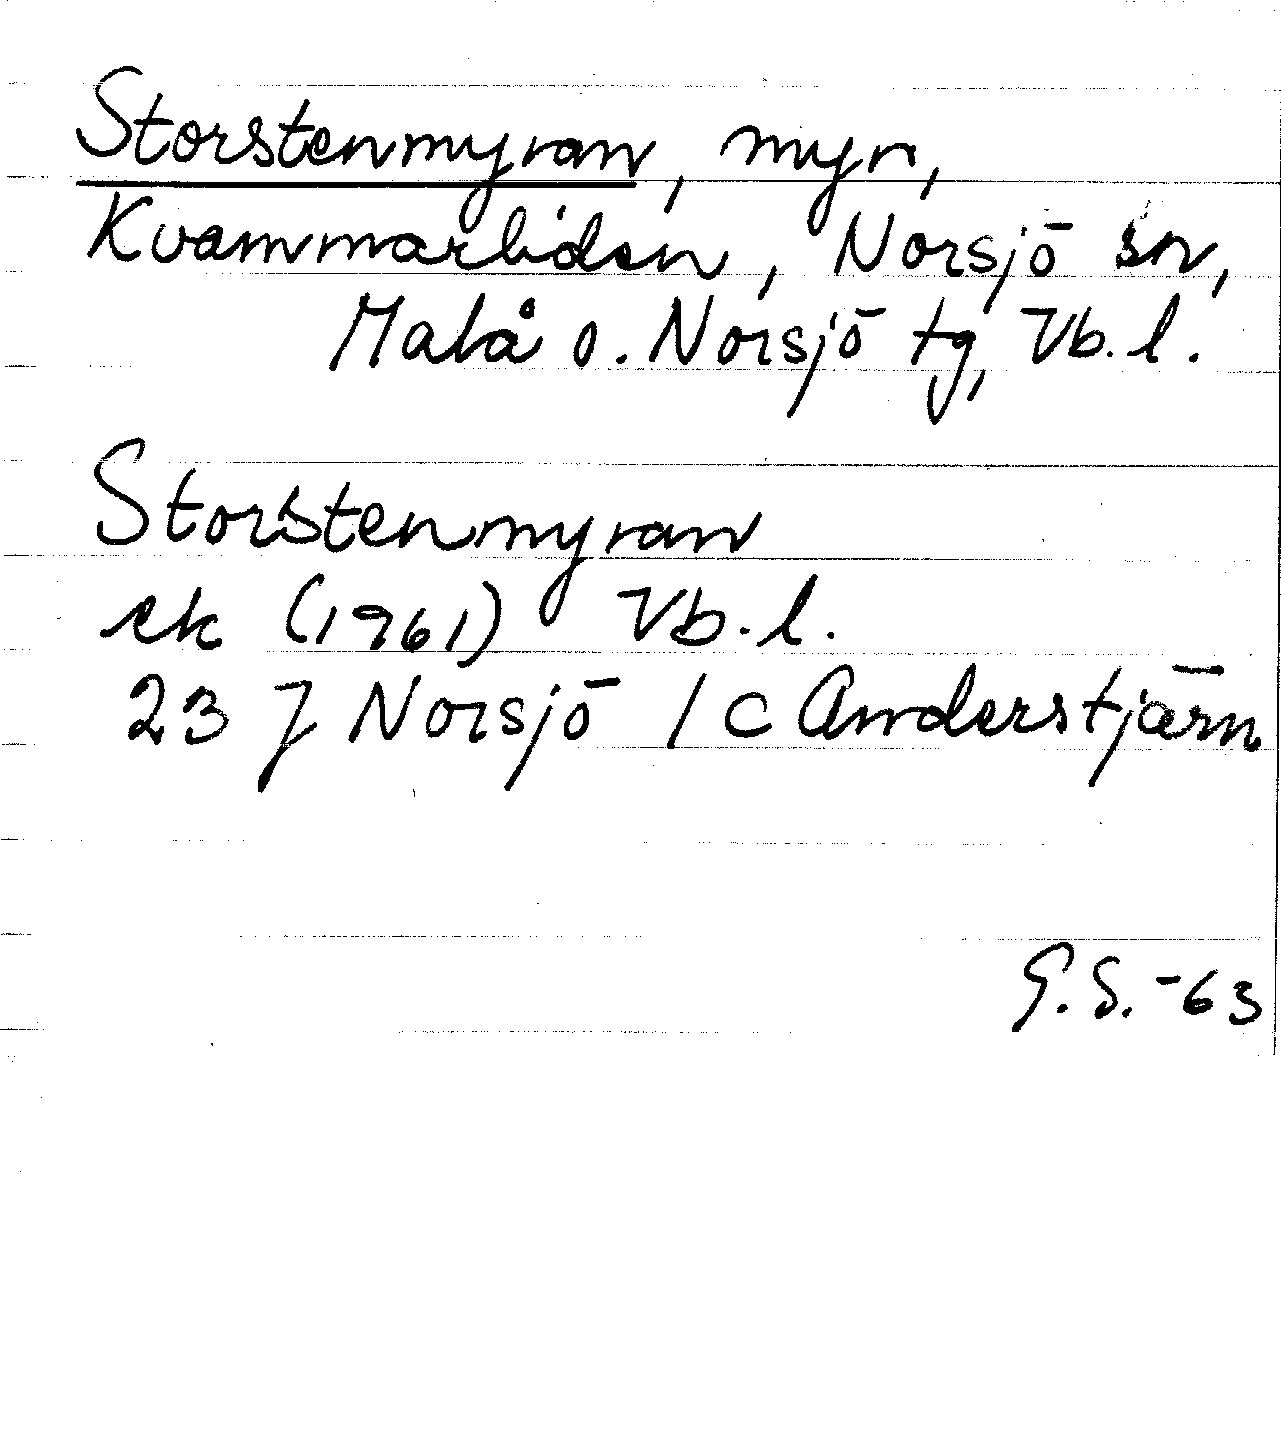 Storstenmyran, myr,
Kvammarliden, Norsjö sn,
Malå o. Norsjö tg, Vb. l.
Storstenmyran
ek (1961) Vb. l.
23 J Norsjö 1 c Anderstjärn
G. S. -63